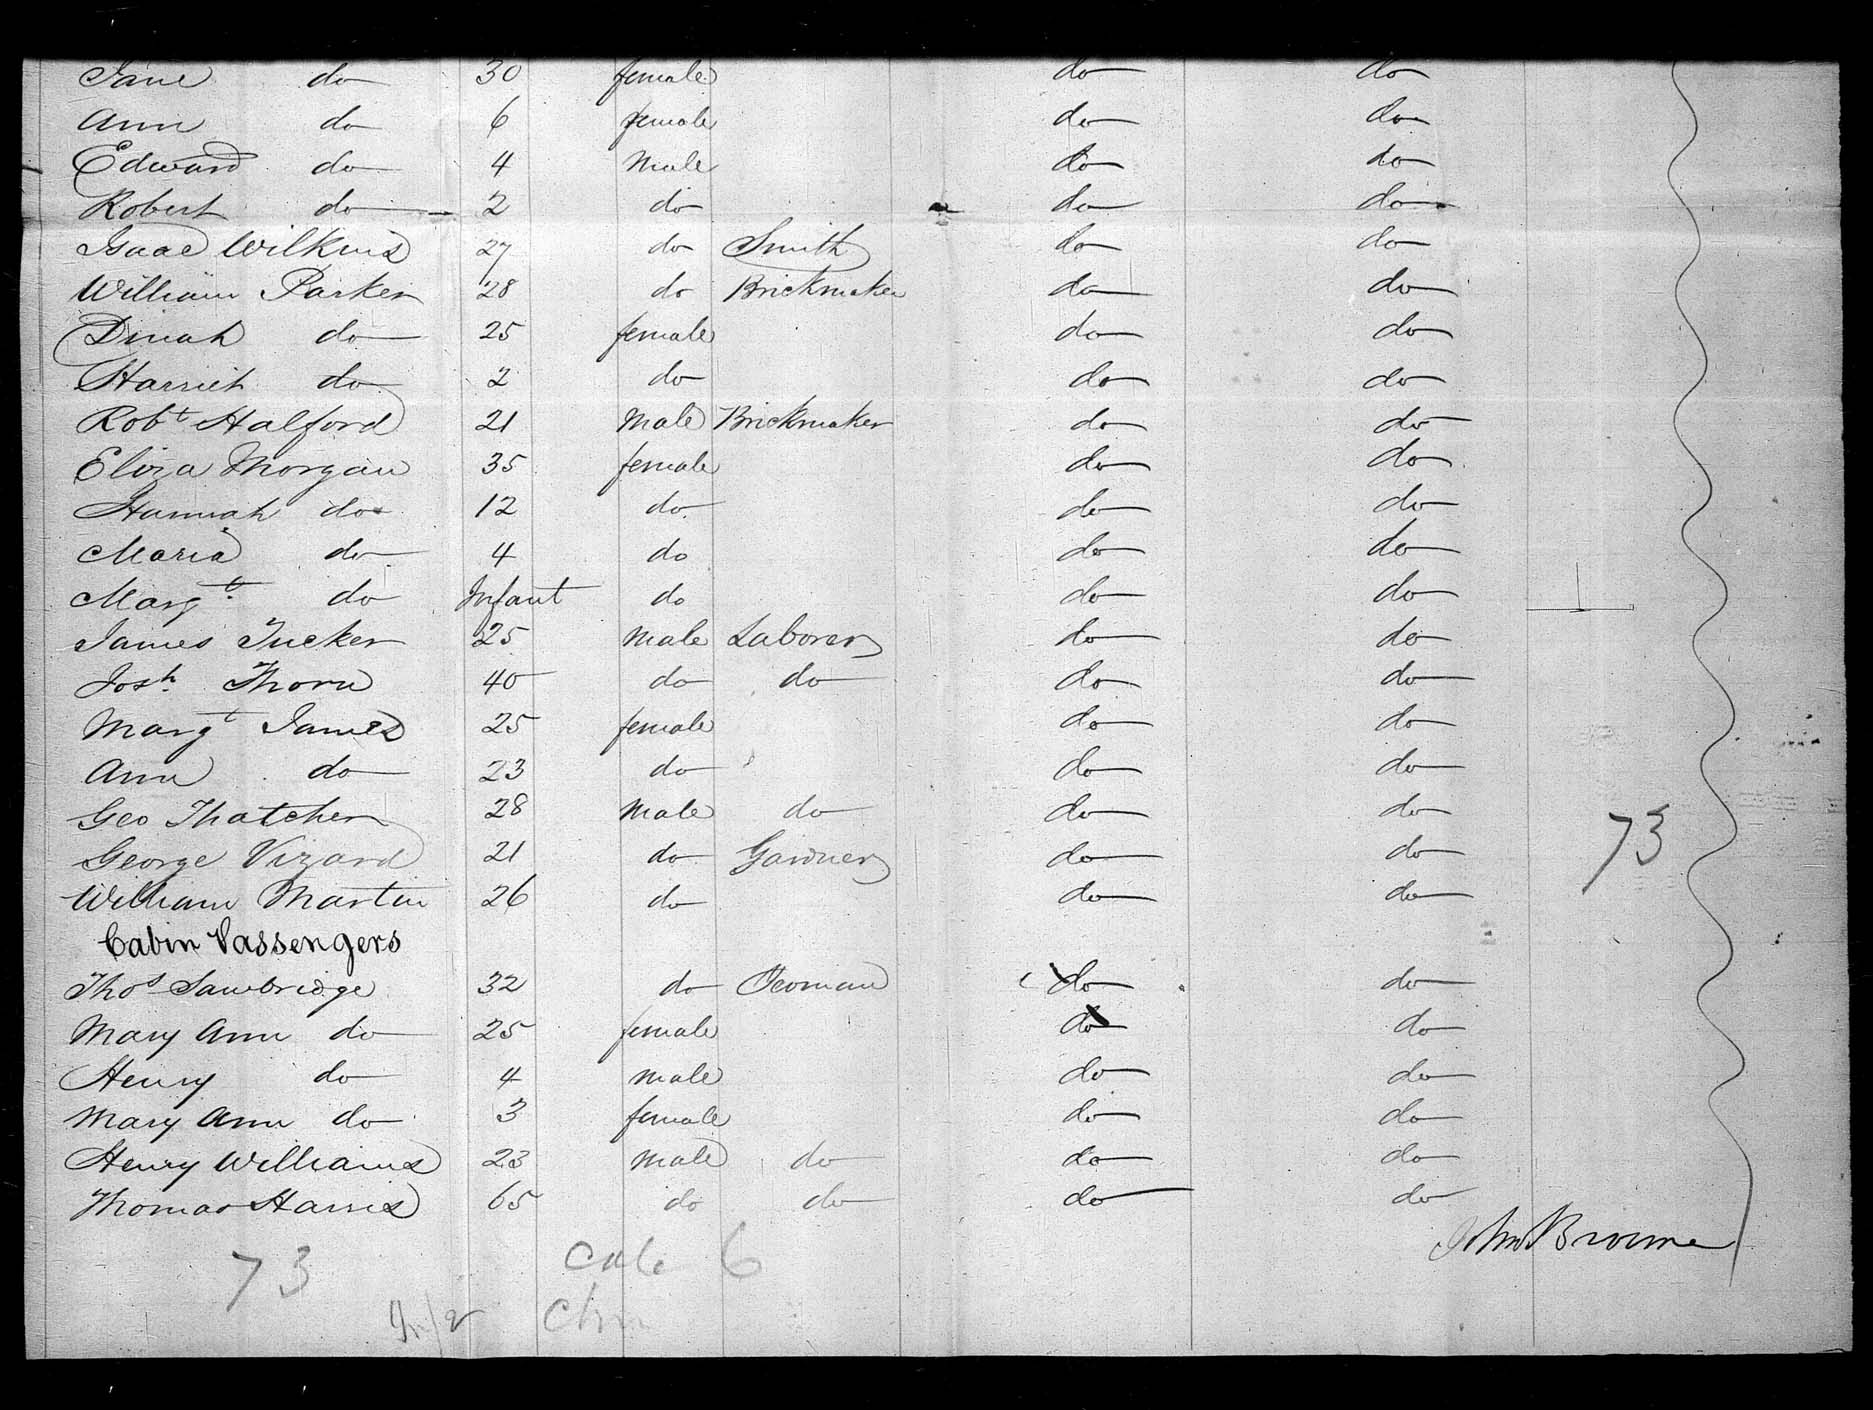 Jane do 30 female do do
Ann do 6 female do do
Edward do 4 male do do
Robert do 2 do do do
Isaac Wilkins 27 do Smith do do
William Parker 28 do Brickmaker do do
Dinah do 25 female do do
Harriet do 2 do do do
Robt Halford 21 Male Brickmaker do do
Eliza Morgan 35 female do do
Hannah do 12 do do do
Maria do 4 do do do
Margt do Infant do do do
James Tucker 25 Male Laborer do do
Josh Thorn 40 do do do do
Margt James 25 female do do
Ann do 23 do do do
Geo Thatcher 28 Male do do do
73
George Vizard 21 do Gardner do do
William Martin 26 do do do
Cabin Passengers
Thos Sawbridge 32 do Yeoman do do
Mary Ann do 25 female do do
Henry do 4 male do do
Mary Ann do 3 female do do
Henry Williams 23 Male do do do
Thomas Harris 65 do do do do
John Browne
73 6